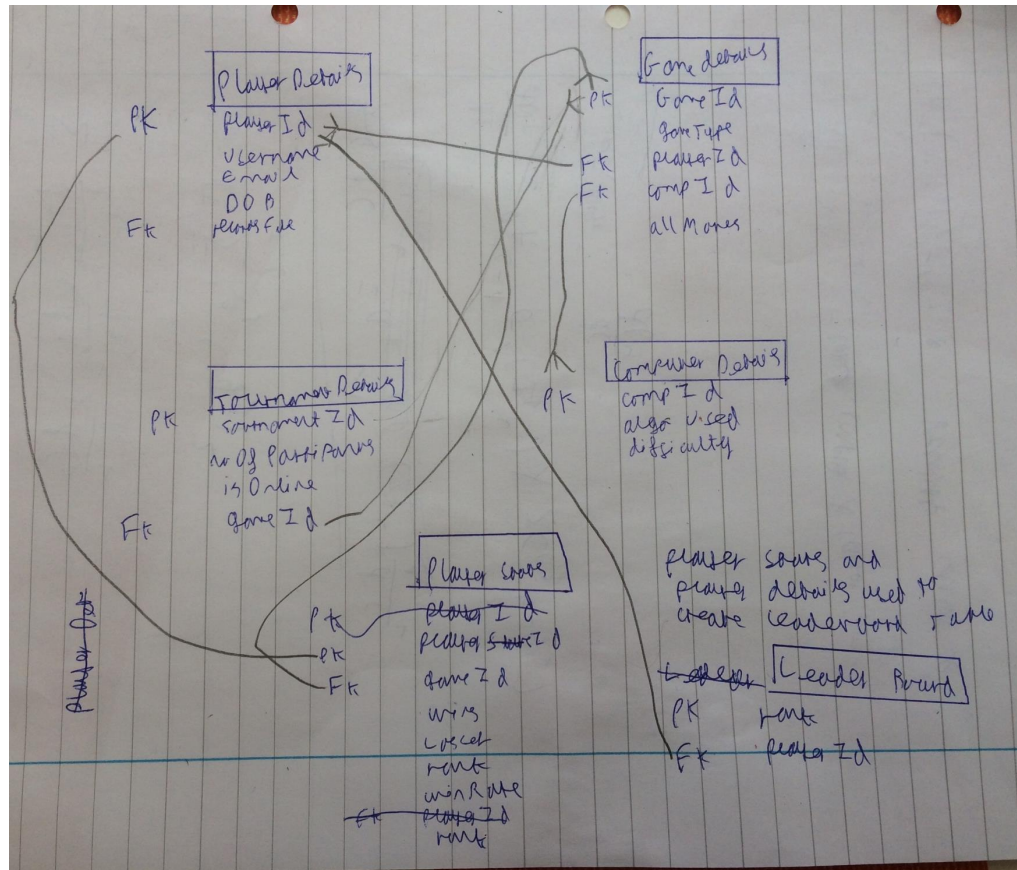 Player Details
PK playerId
Username
Email
DOB
FK
Game details
PK GameId
gameType
FK playerId
FK compId
allMoves
Tournament Details
PK TournamentId
no Of Participants
isOnline
FK gameId
Computer Details
PK compId
algo used
difficulty
Player Stats
PK playerId
PK player Stat Id
FK gameId
wins
Losses
rank
winRate
FK playerId
rank
player stats and
player details used to
create leaderboard Table
Leader Board
PK rank
FK playerId
Player Det